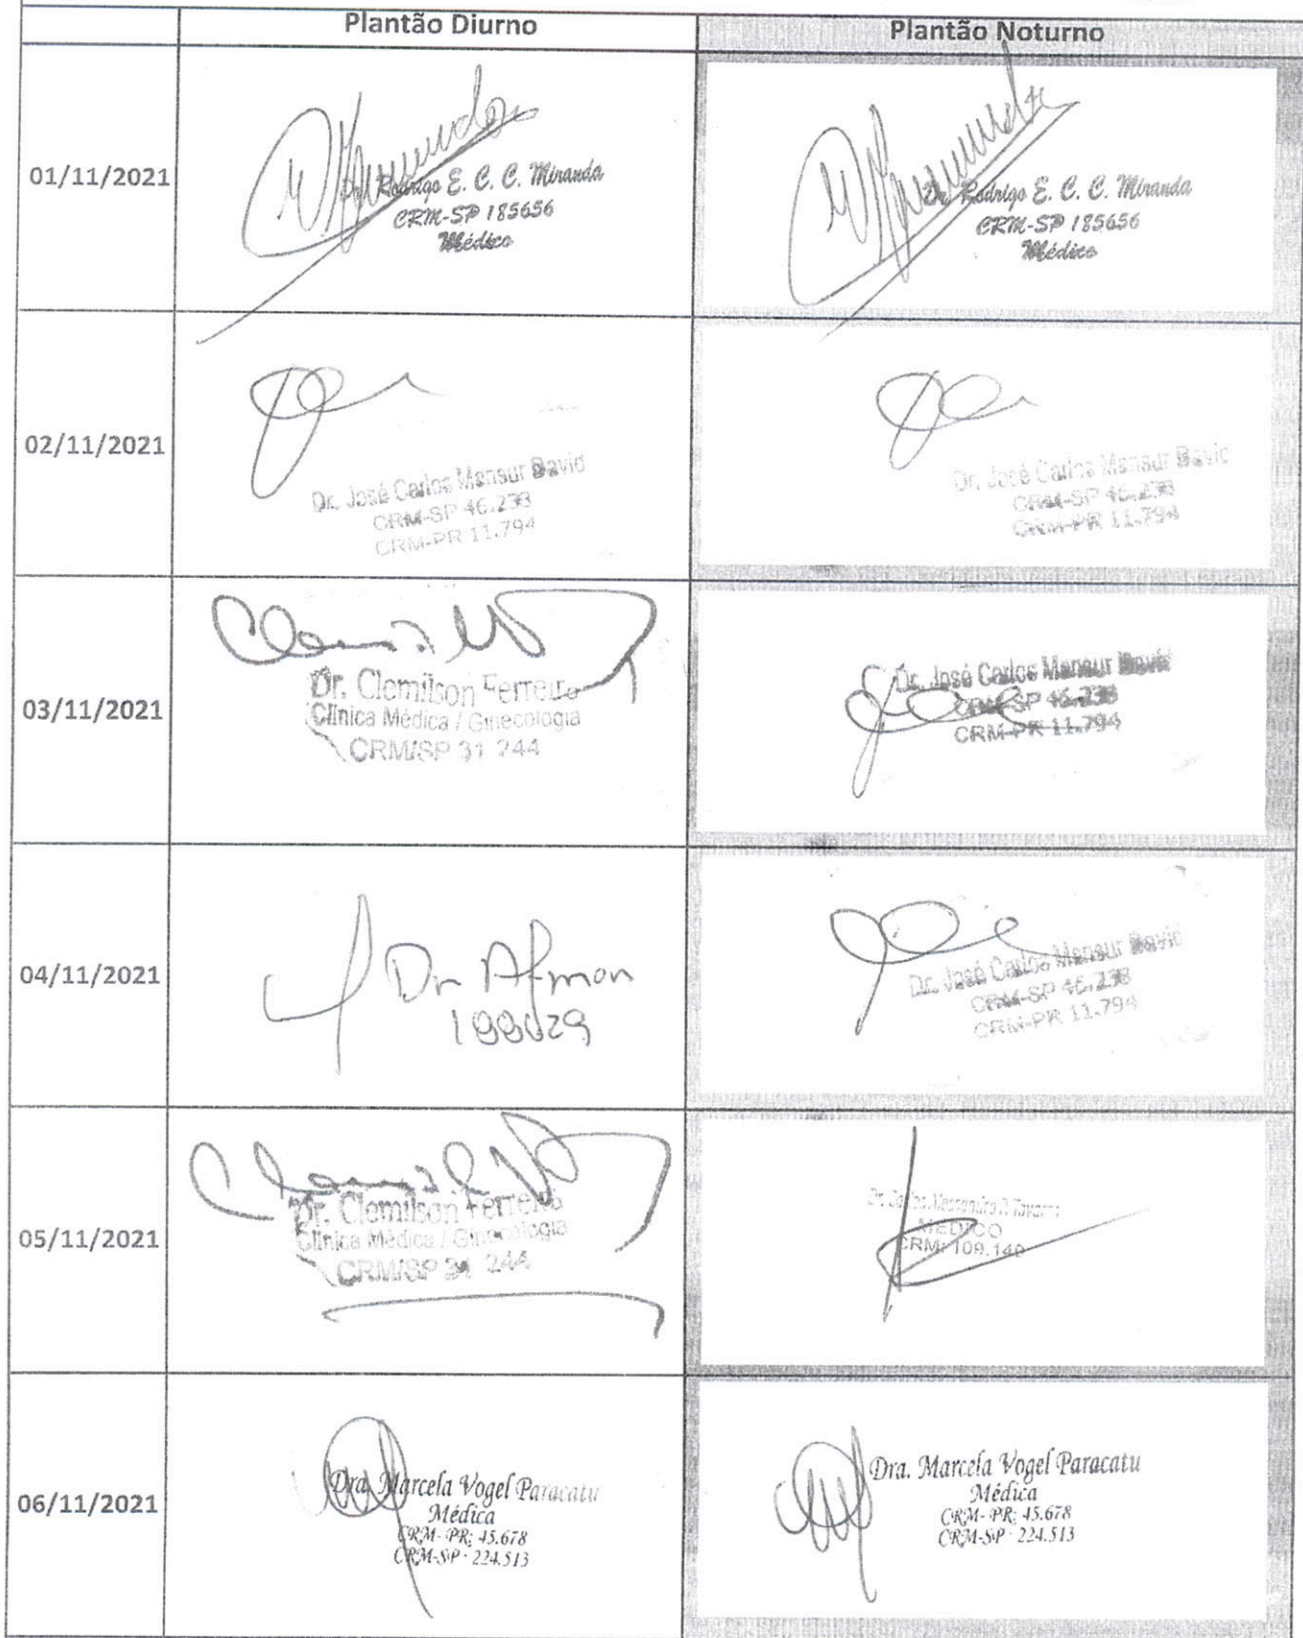 Plantão Diurno
Plantão Noturno
01/11/2021
Dr. Rodrigo E. C. C. Miranda
CRM-SP 185656
Médico
Dr. Rodrigo E. C. C. Miranda
CRM-SP 185656
Médico
02/11/2021
Dr. José Carlos Mansur David
CRM-SP 46.238
CRM-PR 11.794
Dr. José Carlos Mansur David
CRM-SP 46.238
CRM-PR 11.794
03/11/2021
Dr. Clemilson Ferreira
Clínica Médica / Ginecologia
CRM/SP 31 244
Dr. José Carlos Mansur David
CRM-SP 46.238
CRM-PR 11.794
04/11/2021
Dr
Dr. José Carlos Mansur David
CRM-SP 46.238
CRM-PR 11.794
05/11/2021
Dr. Clemilson Ferreira
Clínica Médica / Ginecologia
CRM/SP 31 244
Dr.
MÉDICO
CRM: 109.140
06/11/2021
Dra. Marcela Vogel Paracatu
Médica
CRM-PR: 45.678
CRM-SP · 224.513
Dra. Marcela Vogel Paracatu
Médica
CRM-PR: 45.678
CRM-SP · 224.513